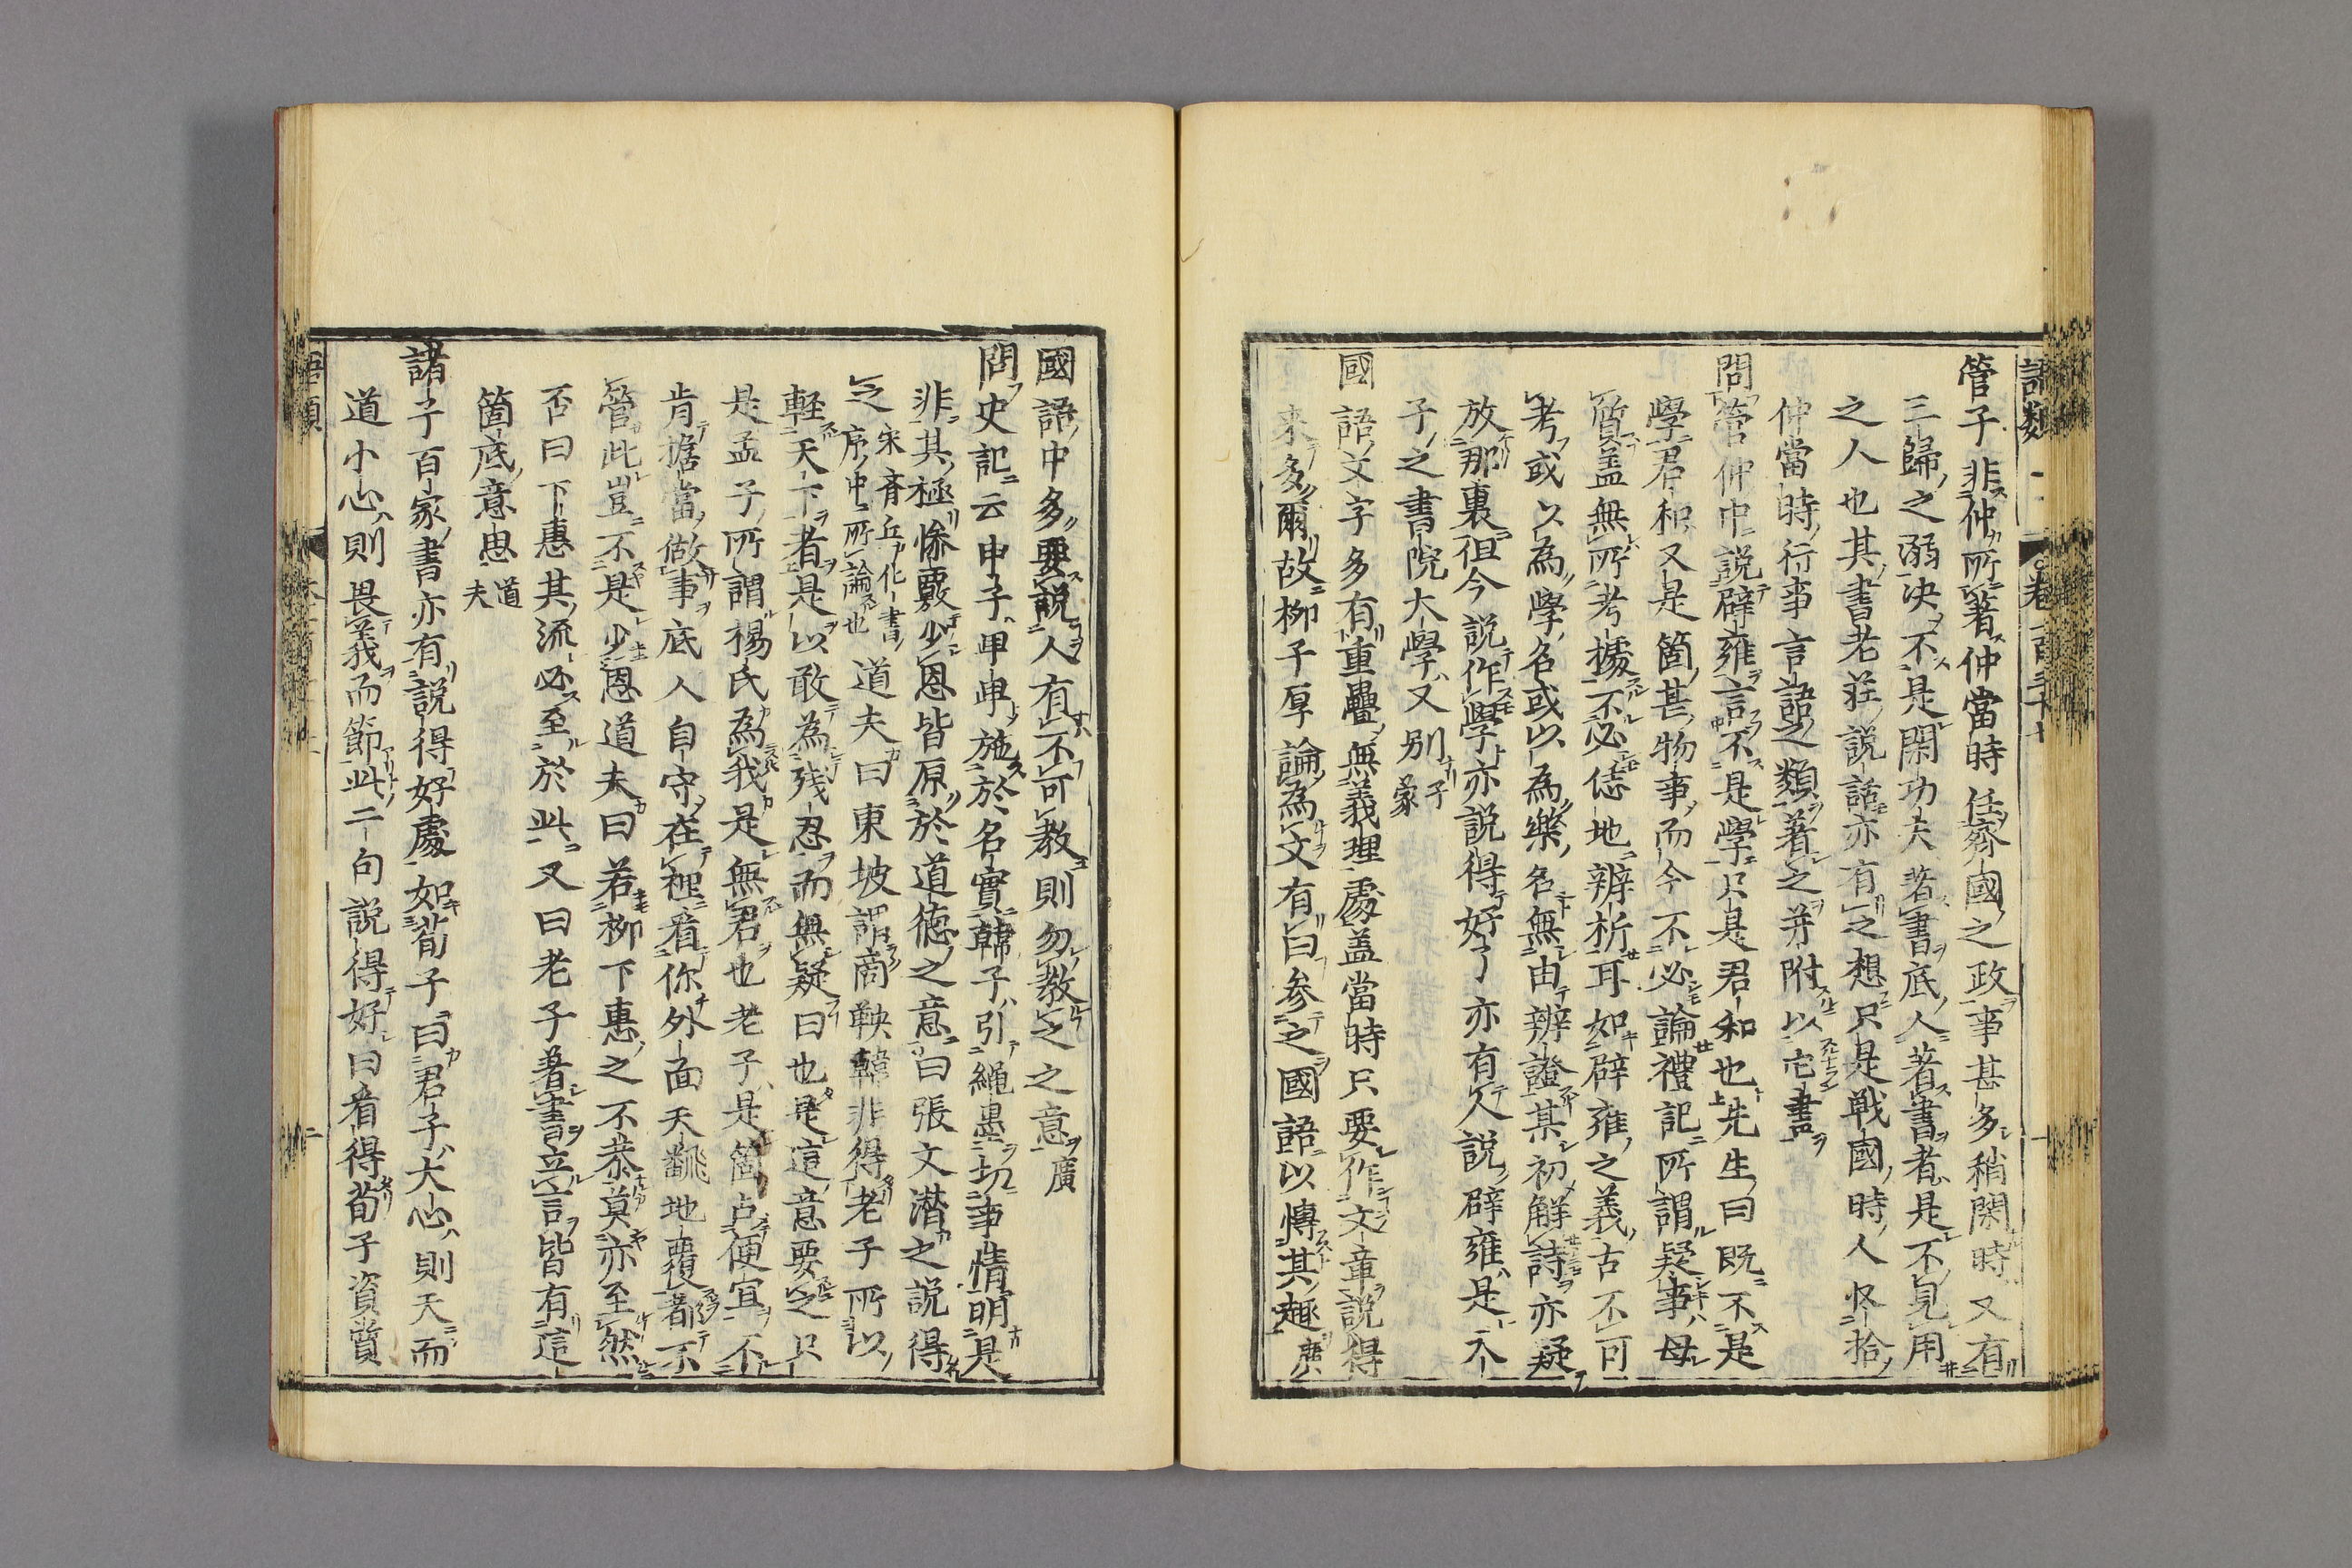 語類
卷一百三十七
管子非仲所著仲當時任齊國之政事甚多稍閑時又有
三歸之溺决不是閑功夫著書底人著書者是不見用
之人也其書老莊說話亦有之想只是戦國時人収拾
仲當時行事言語之類著之并附以它書
問管仲中說辟雍言不是學只是君和也先生曰既不是
學君和又是箇甚物事而今不必論禮記所謂疑事毋
質盖無所考據不必恁地辨析耳如辟雍之義古不可
考或以為學名或以為樂名無由辨證某初解詩亦疑
放那裏但今說作學亦說得好了亦有人說辟雍是天
子之書院太學又別子蒙
國語文字多有重疊無義理處盖當時只要作文章說得
來多爾故栁子厚論為文有曰参之國語以愽其趣廣
國語中多要說人有不可教則勿教之之意廣
問史記云申子卑卑施於名實韓子引繩墨切事情明是
非其極慘覈少恩皆原於道德之意曰張文潛之說得
之宋齊丘化書序中所論也道夫曰東坡謂商鞅韓非得老子所以
軽天下者是以敢為残忍而無疑曰也是這意要之只
是孟子所謂楊氏為我是無君也老子是箇占便宜不
肯擔當做事底人自守在裡看你外面天飜地覆都不
管此豈不是少恩道夫曰若栁下惠之不恭莫亦至然
否曰下惠其流必至於此又曰老子著書立言皆有這
箇底意思道夫
諸子百家書亦有說得好處如荀子曰君子大心則天而
道小心則畏義而節此二句說得好曰看得荀子資質
語類